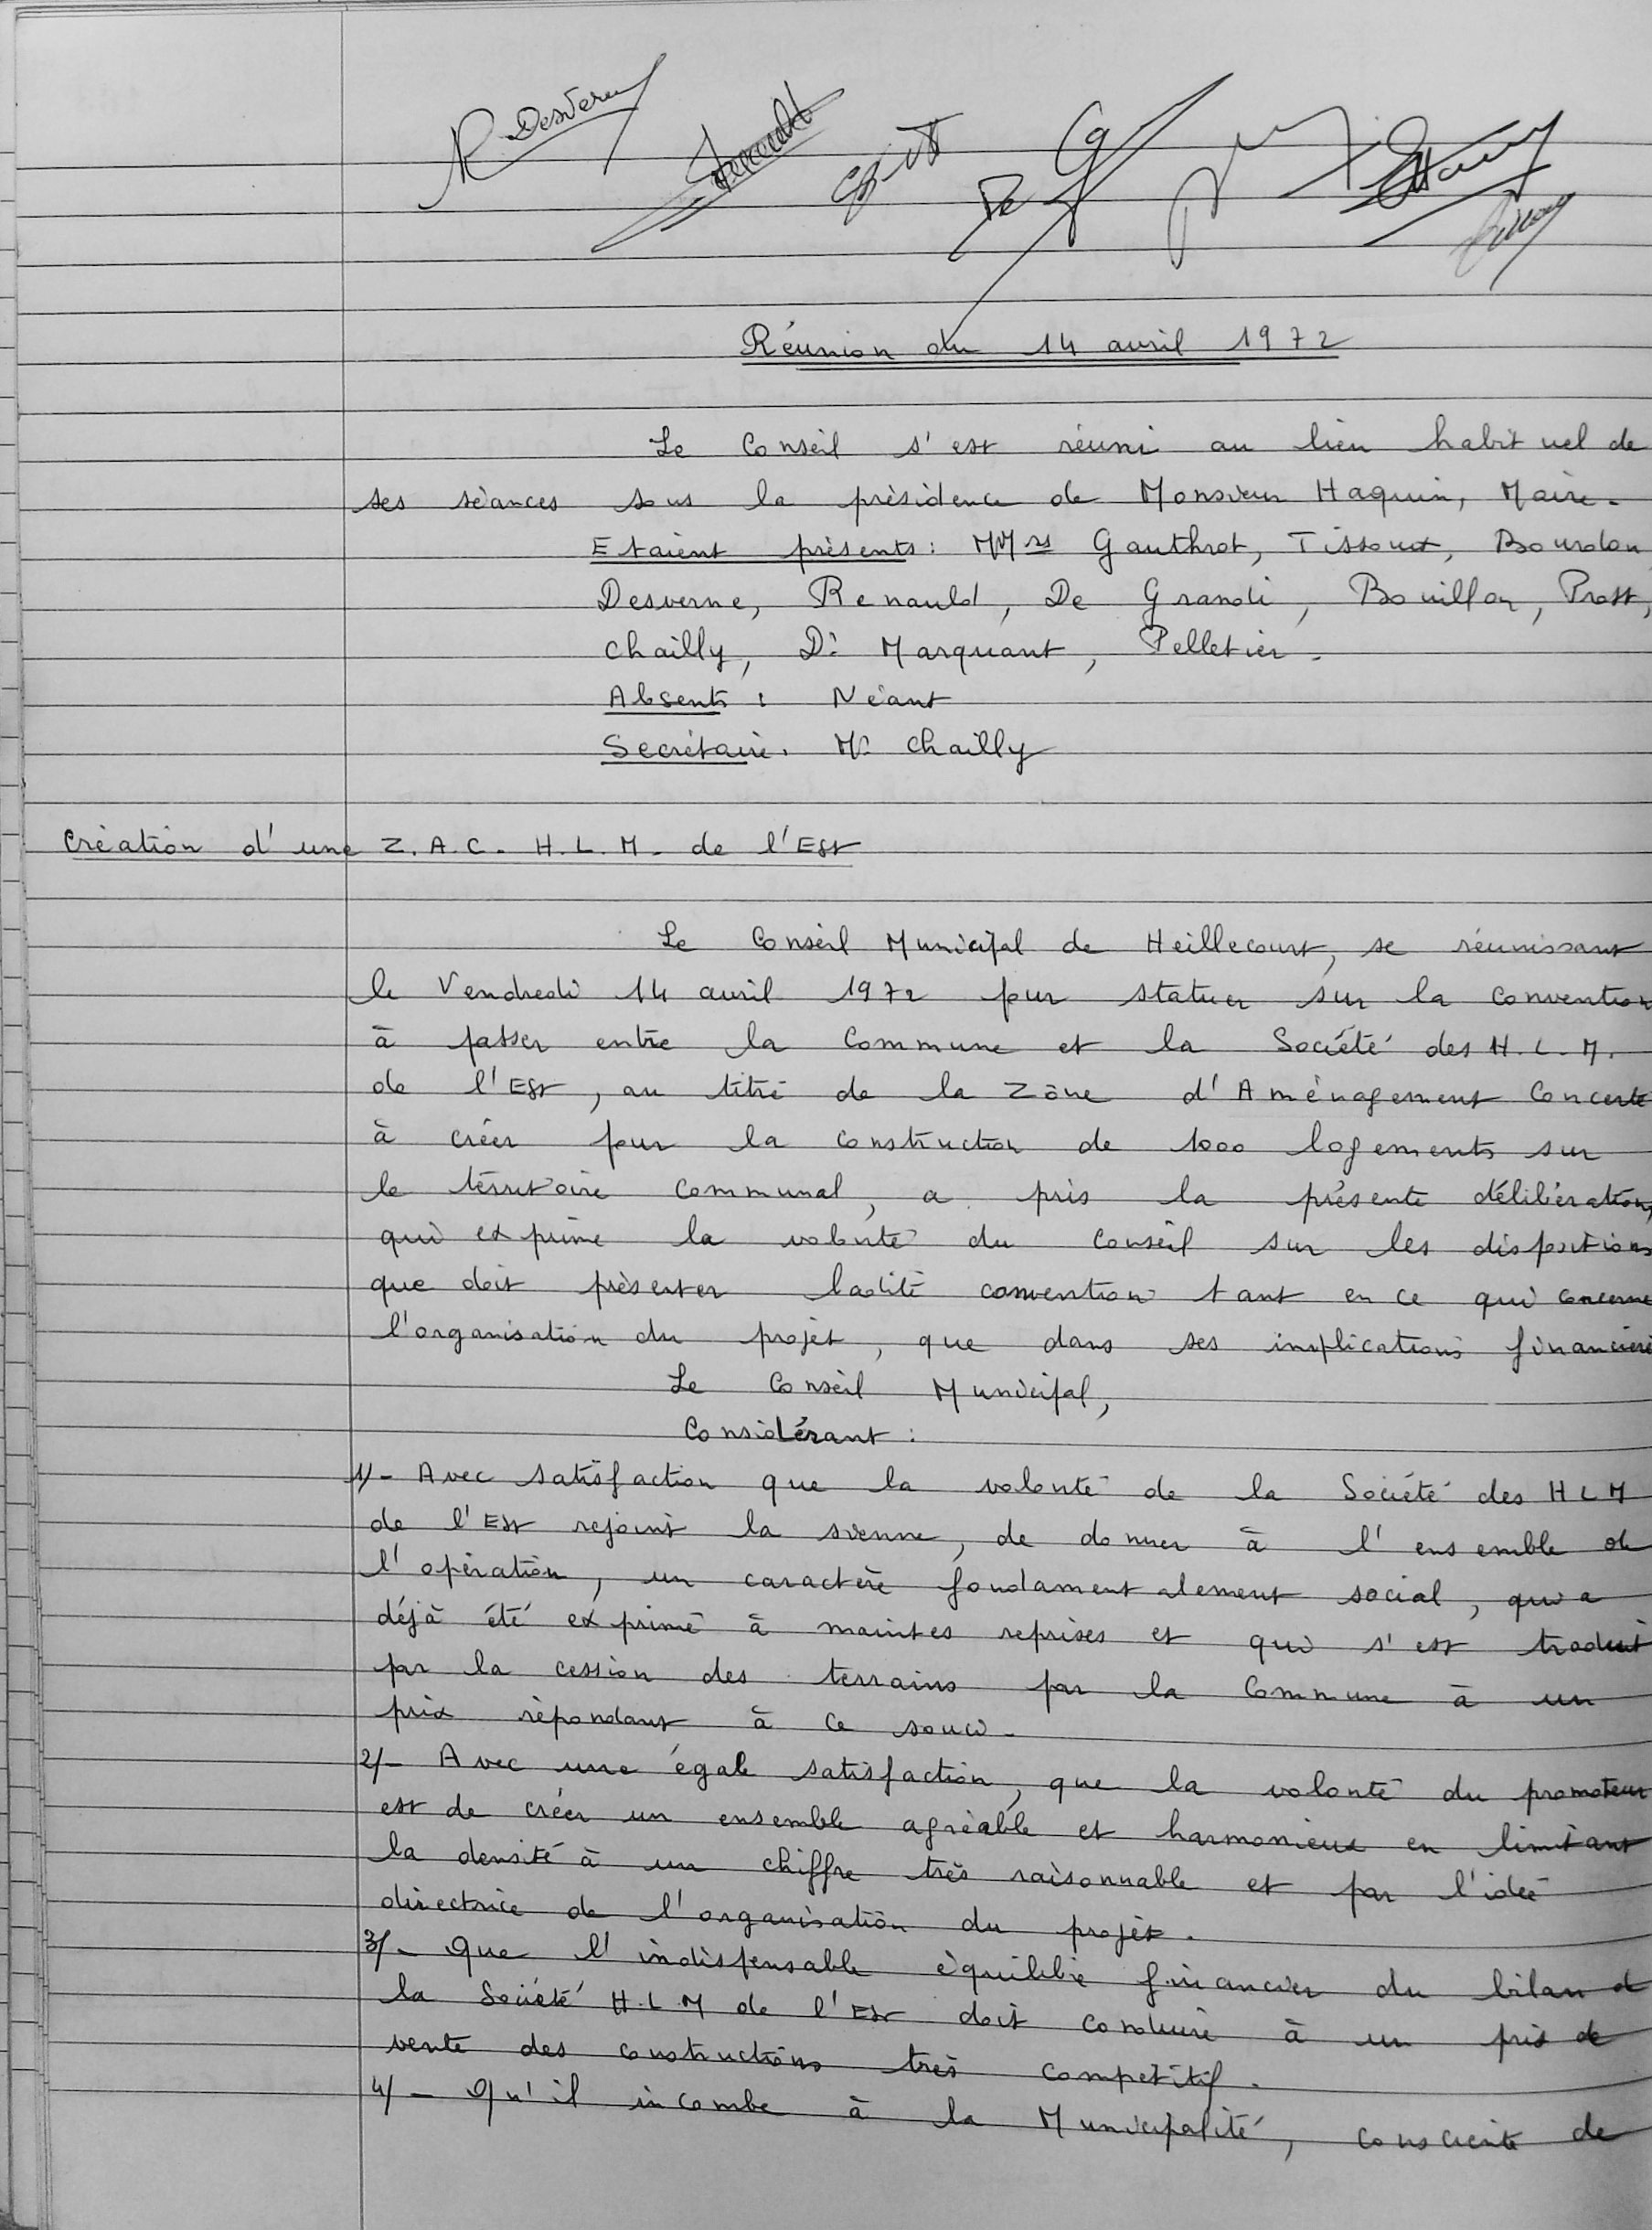 R. Desverne
Réunion du 14 avril 1972
Le Conseil s'est réuni au lieu habituel de
ses séances sous la présidence de Monsieur Haquin, Maire.
Etaient présents : MMrs Gauthrot, Tissoux, Bourdon
Desverne, Renauld, De Grandi, Bouillon, Prost,
Chailly, Dr Marquant, Pelletier.
Absents : Néant
Secrétaire. Mr Chailly
Création d'une Z.A.C. H.L.M. de l'Est
Le Conseil Municipal de Heillecourt, se réunissant
le Vendredi 14 avril 1972 pour statuer sur la convention
à passer entre la Commune et la Société des H.L.M.
de l'Est, au titre de la Zône d'Aménagement Concerté
à créer pour la construction de 1000 logements sur
le territoire communal, a pris la présente délibération,
qui exprime la volonté du Conseil sur les dispositions
que doit présenter ladite convention tant en ce qui concerne
l'organisation du projet, que dans ses implications financière
Le Conseil Municipal,
Considérant :
1/- Avec satisfaction que la volonté de la Société des HLM
de l'Est rejoint la sienne, de donner à l'ensemble de
l'opération, un caractère fondamentalement social, qui a
déjà été exprimé à maintes reprises et qui s'est traduit
par la cession des terrains par la Commune à un
prix répondant à ce souci.
2/- Avec une égale satisfaction, que la volonté du promoteur
est de créer un ensemble agréable et harmonieux en limitant
la densité à un chiffre très raisonnable et par l'idée
directrice de l'organisation du projet.
3/- Que l'indispensable équilibre financier du bilan d
la Société H.L.M de l'Est doit conduire à un prix de
vente des constructions très compétitif.
4/- Qu'il incombe à la Municipalité, consciente de